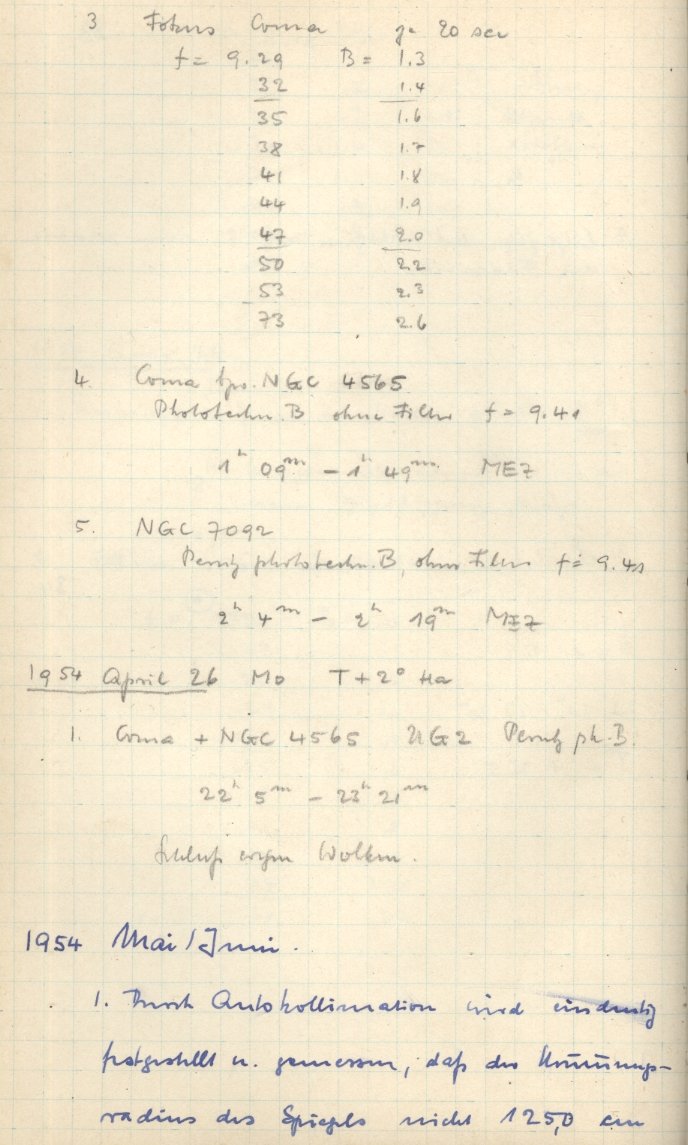 3 Fokus Coma je 20 sec
f = 9.29 B = 1.3
32 1.4
35 1.6
38 1.7
41 1.8
44 1.9
47 2.0
50 2.2
53 2.3
73 2.6
4. Coma bzw. NGC 4565
Phototechn. B ohne Filter f = 9.41
1h 09m – 1h 49m MEZ
5. NGC 7092
Perutz phototechn. B, ohne Filter f = 9.41
2h 4m – 2h 19m MEZ
1954 April 26 Mo T + 2° Ha
1. Coma + NGC 4565 UG2 Perutz ph. B.
22h 5m – 23h 21m
Schluß wegen Wolken.
1954 Mai/Juni.
1. Durch Autokollimation wird eindeutig
festgestellt u. gemessen, daß der Krümmungs-
radius des Spiegels nicht 125,0 cm